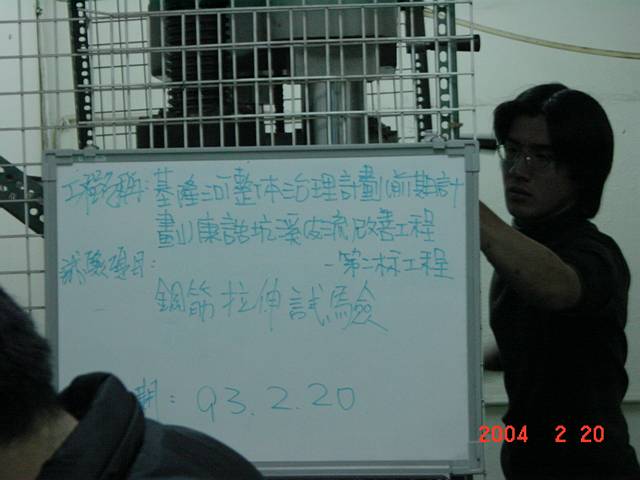 工程名稱：基隆河整体治理計劃(前期計
劃)康誥坑溪支流改善工程
試驗項目：
-第二标工程
鋼筋拉伸試驗
期：93.2.20
2004 2 20